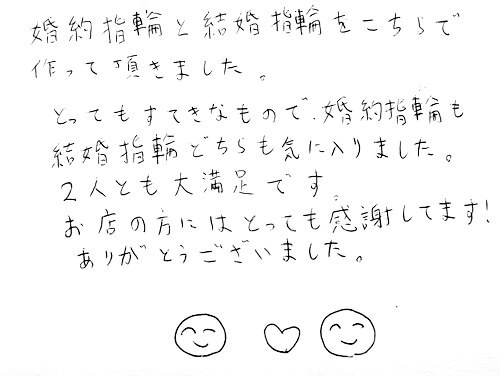 婚約指輪と結婚指輪をこちらで
作って頂きました。
とってもすてきなもので、婚約指輪も
結婚指輪どちらも気に入りました。
2人とも大満足です。
お店の方にはとっても感謝してます!
ありがとうございました。